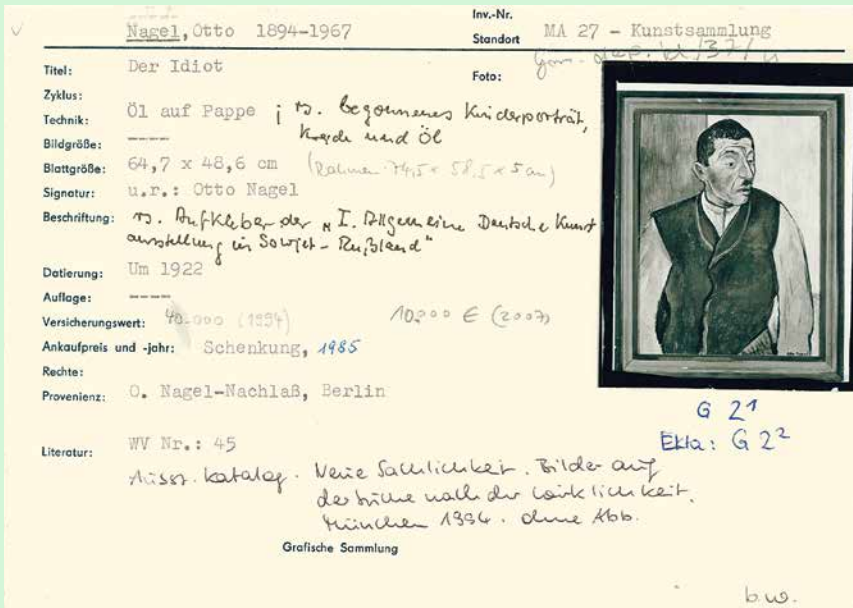 Nagel, Otto 1894-1967
Inv.-Nr.
Standort MA 27 - Kunstsammlung
Titel: Der Idiot
Foto:
Zyklus:
Technik: Öl auf Pappe ; rs. begonnenes Kinderporträt,
Kreide und Öl
Bildgröße: ----
Blattgröße: 64,7 x 48,6 cm (Rahmen 74,5 x 58,5 x 5 cm)
Signatur: u.r.: Otto Nagel
Beschriftung: rs. Aufkleber der „I. Allgemeine Deutsche Kunst
ausstellung in Sowjet-Rußland"
Datierung: Um 1922
Auflage: ----
Versicherungswert: 40.000 (1994) 10.000 € (2007)
Ankaufpreis und -jahr: Schenkung, 1985
Rechte:
Provenienz: O. Nagel-Nachlaß, Berlin
G 2¹
Ekta: G 2²
Literatur: WV Nr.: 45
Ausst. Katalog. Neue Sachlichkeit. Bilder auf
der Suche nach der Wirklichkeit.
München 1994. ohne Abb.
Grafische Sammlung
b.w.